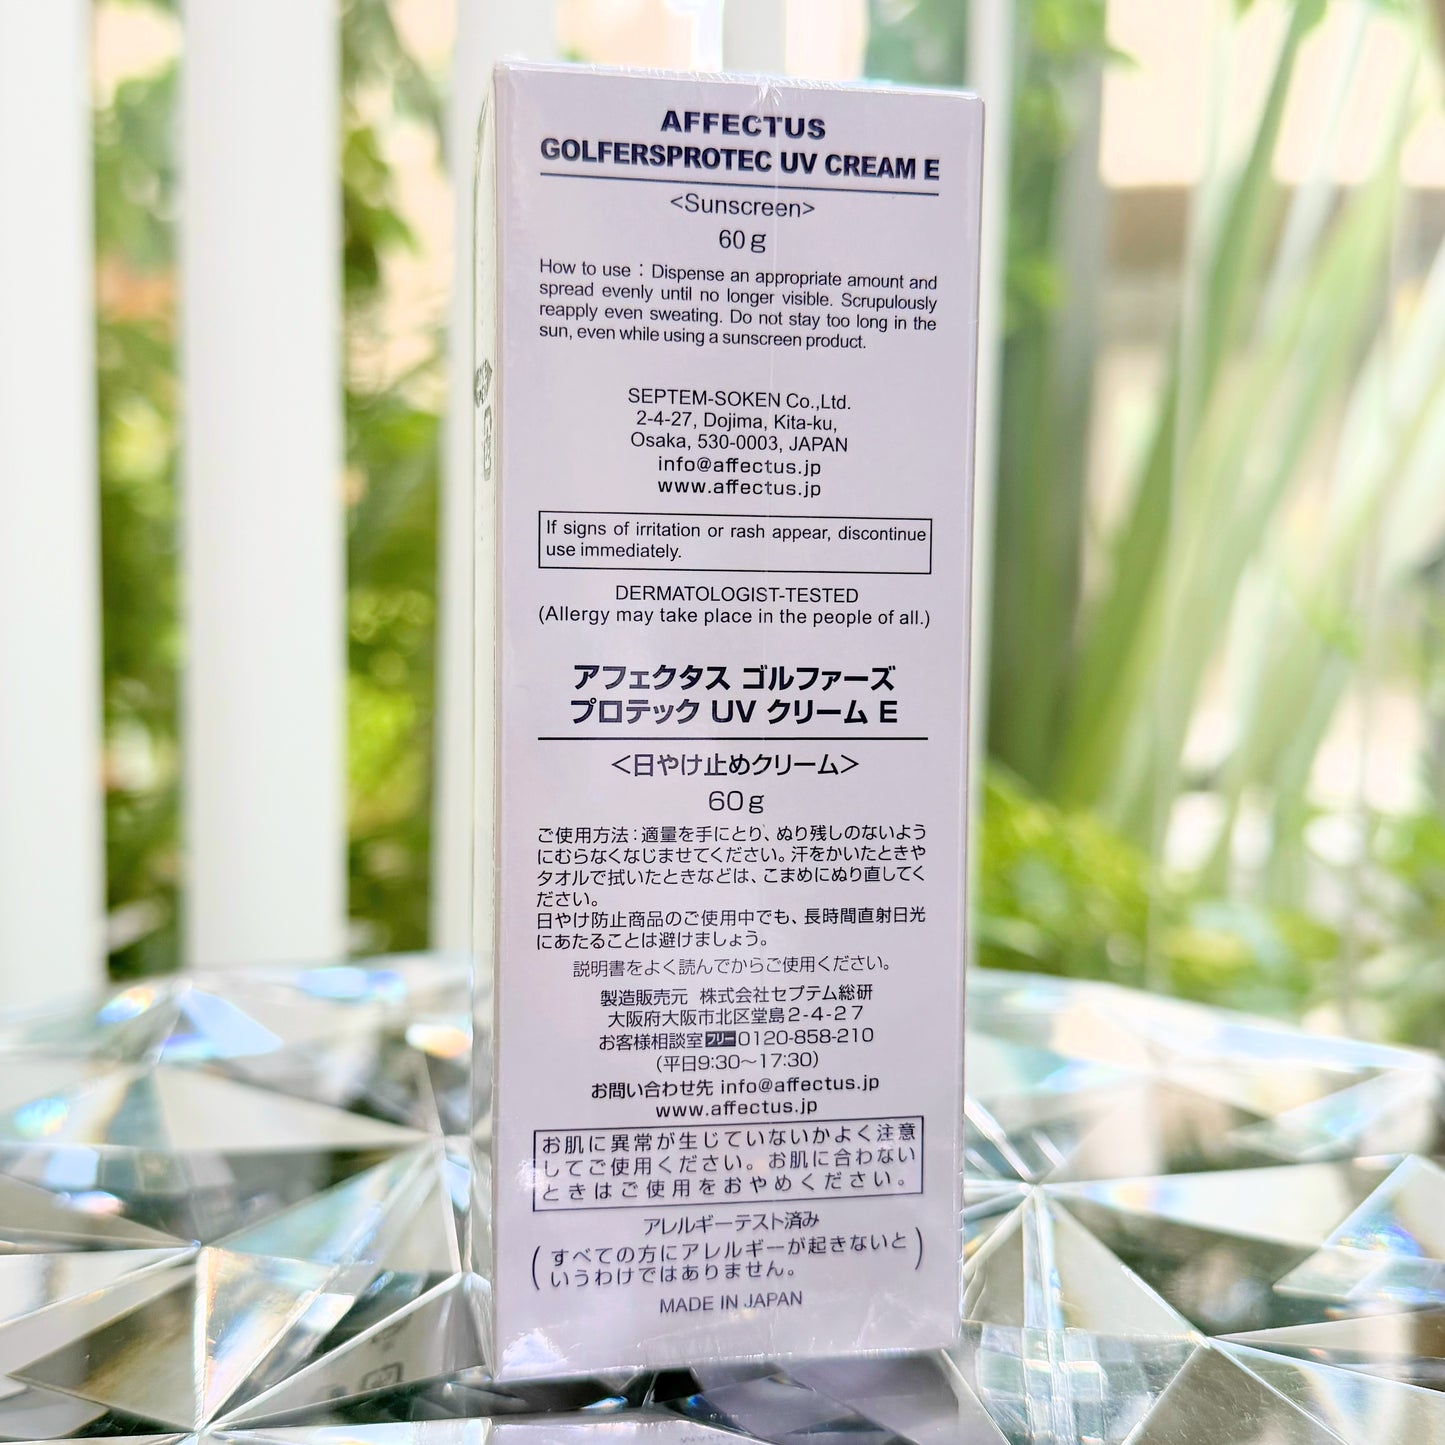 AFFECTUS
GOLFERSPROTEC UV CREAM E
<Sunscreen>
60g
How to use：Dispense an appropriate amount and
spread evenly until no longer visible. Scrupulously
reapply even sweating. Do not stay too long in the
sun, even while using a sunscreen product.
SEPTEM-SOKEN Co.,Ltd.
2-4-27, Dojima, Kita-ku,
Osaka, 530-0003, JAPAN
info@affectus.jp
www.affectus.jp
If signs of irritation or rash appear, discontinue
use immediately.
DERMATOLOGIST-TESTED
(Allergy may take place in the people of all.)
アフェクタス ゴルファーズ
プロテック UV クリーム E
<日やけ止めクリーム>
60g
ご使用方法：適量を手にとり、ぬり残しのないよう
にむらなくなじませてください。汗をかいたときや
タオルで拭いたときなどは、こまめにぬり直してく
ださい。
日やけ防止商品のご使用中でも、長時間直射日光
にあたることは避けましょう。
説明書をよく読んでからご使用ください。
製造販売元 株式会社セプテム総研
大阪府大阪市北区堂島2-4-27
お客様相談室フリー0120-858-210
(平日9:30〜17:30)
お問い合わせ先 info@affectus.jp
www.affectus.jp
お肌に異常が生じていないかよく注意
してご使用ください。お肌に合わない
ときはご使用をおやめください。
アレルギーテスト済み
(すべての方にアレルギーが起きないと
いうわけではありません。)
MADE IN JAPAN